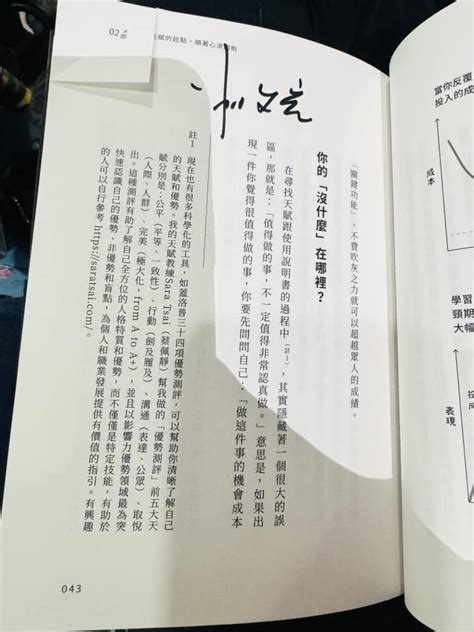 02
賦的起點，順著心流
「關鍵功能」，不費吹灰之力就可以超越眾人的成績。
你的「沒什麼」在哪裡？
在尋找天賦跟使用說明書的過程中（註1），其實隱藏著一個很大的誤
區，那就是：「值得做的事，不一定值得非常認真做。」意思是，如果出
現一件你覺得很值得做的事，你要先問問自己：「做這件事的機會成本
註1 現在也有很多科學化的工具，如蓋洛普三十四項優勢測評，可以幫助你清晰了解自己
的天賦和優勢。我的天賦教練Sara Tsai（蔡佩靜）幫我做的「優勢測評」前五大天
賦分別是：公平（平等、一致性）、行動（劍及履及）、溝通（表達、公眾）、取悅
（人際、人群）、完美（極大化，from A to A+），並且以影響力優勢領域最為突
出。這種測評有助了解自己全方位的人格特質和優勢，而不僅僅是特定技能，有助於
快速認識自己的優勢、非優勢和盲點，為個人和職業發展提供有價值的指引。有興趣
的人可以自行參考https://saratsai.com/。
043
當你反覆
投入的成
成本
學習
頸期
大幅
表現